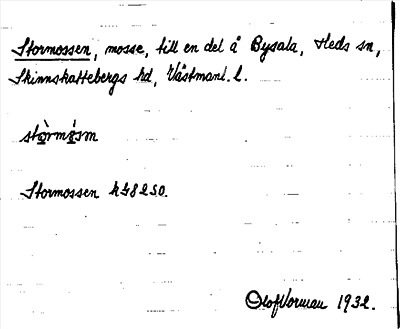 Stormossen, mosse, till en del å Bysala, Heds sn,
Skinnskattebergs hd, Västmanl. l.
Stormossen k48250.
Olof Vorman 1932.